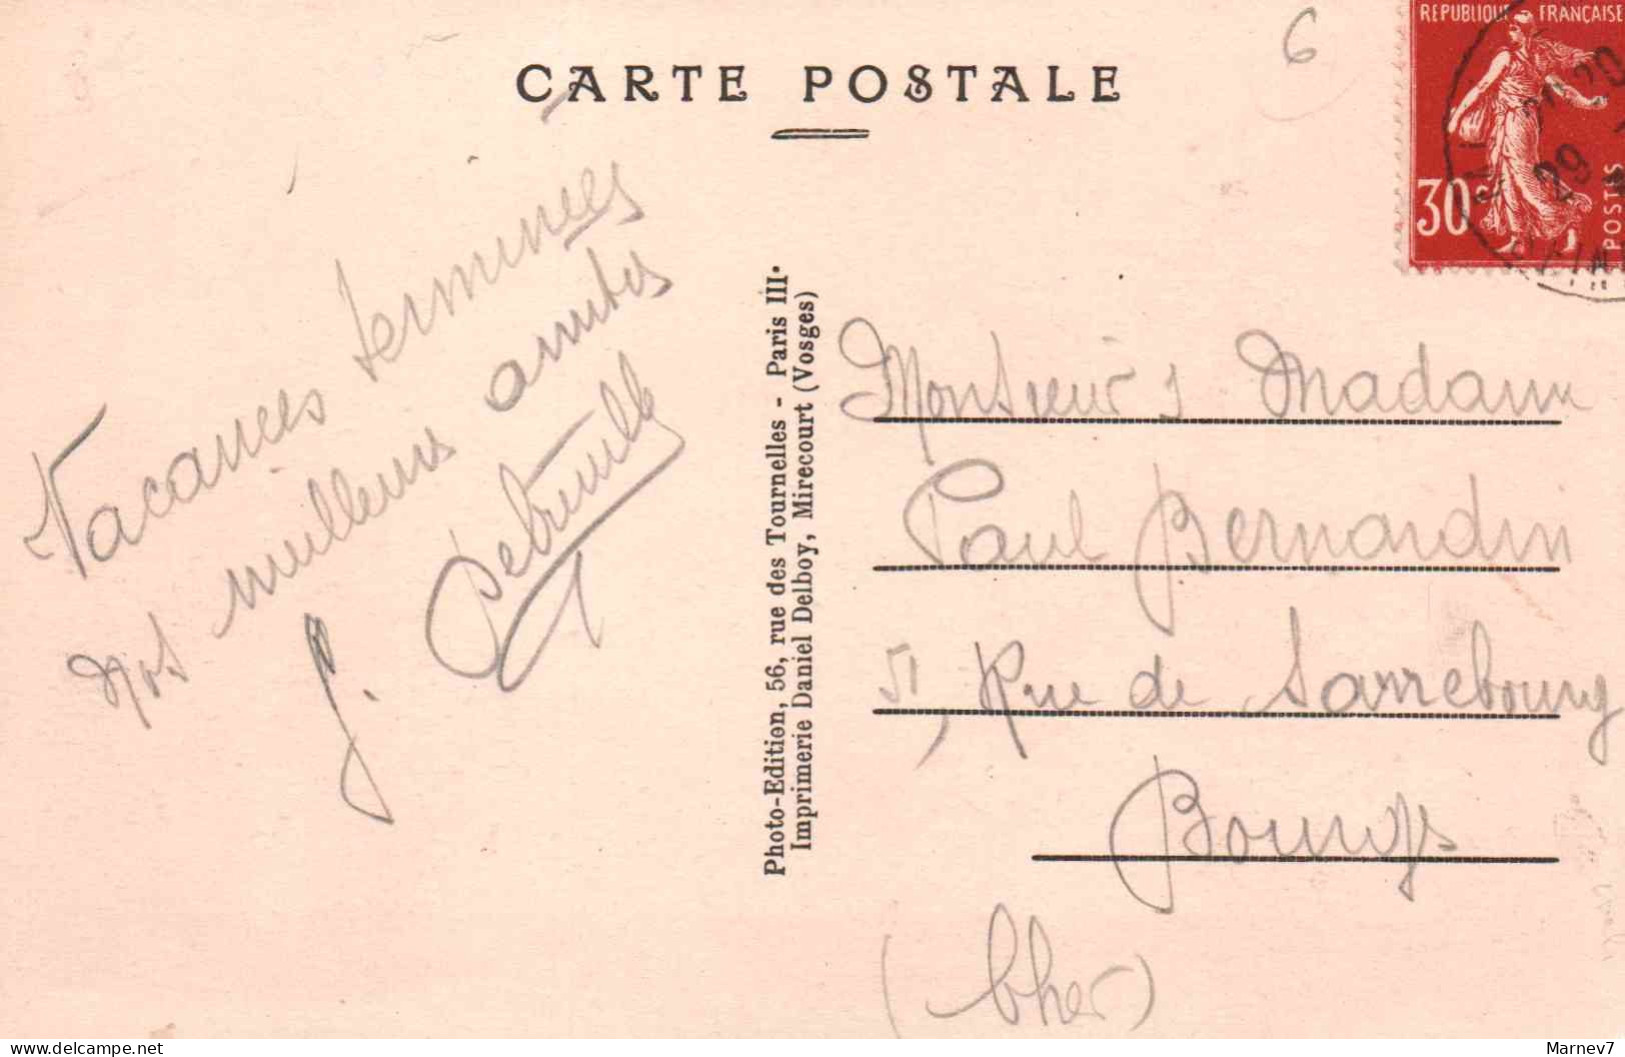 CARTE POSTALE
6
REPUBLIQUE FRANÇAISE
30c
POSTES
20
29
Vacances terminées
Nos meilleures amitiés
J.
Photo-Edition, 56, rue des Tournelles - Paris III•
Imprimerie Daniel Delboy, Mirecourt (Vosges)
Monsieur & Madame
Paul Bernardin
51, Rue de Sarrebourg
Bourges
(Cher)
Marnev7